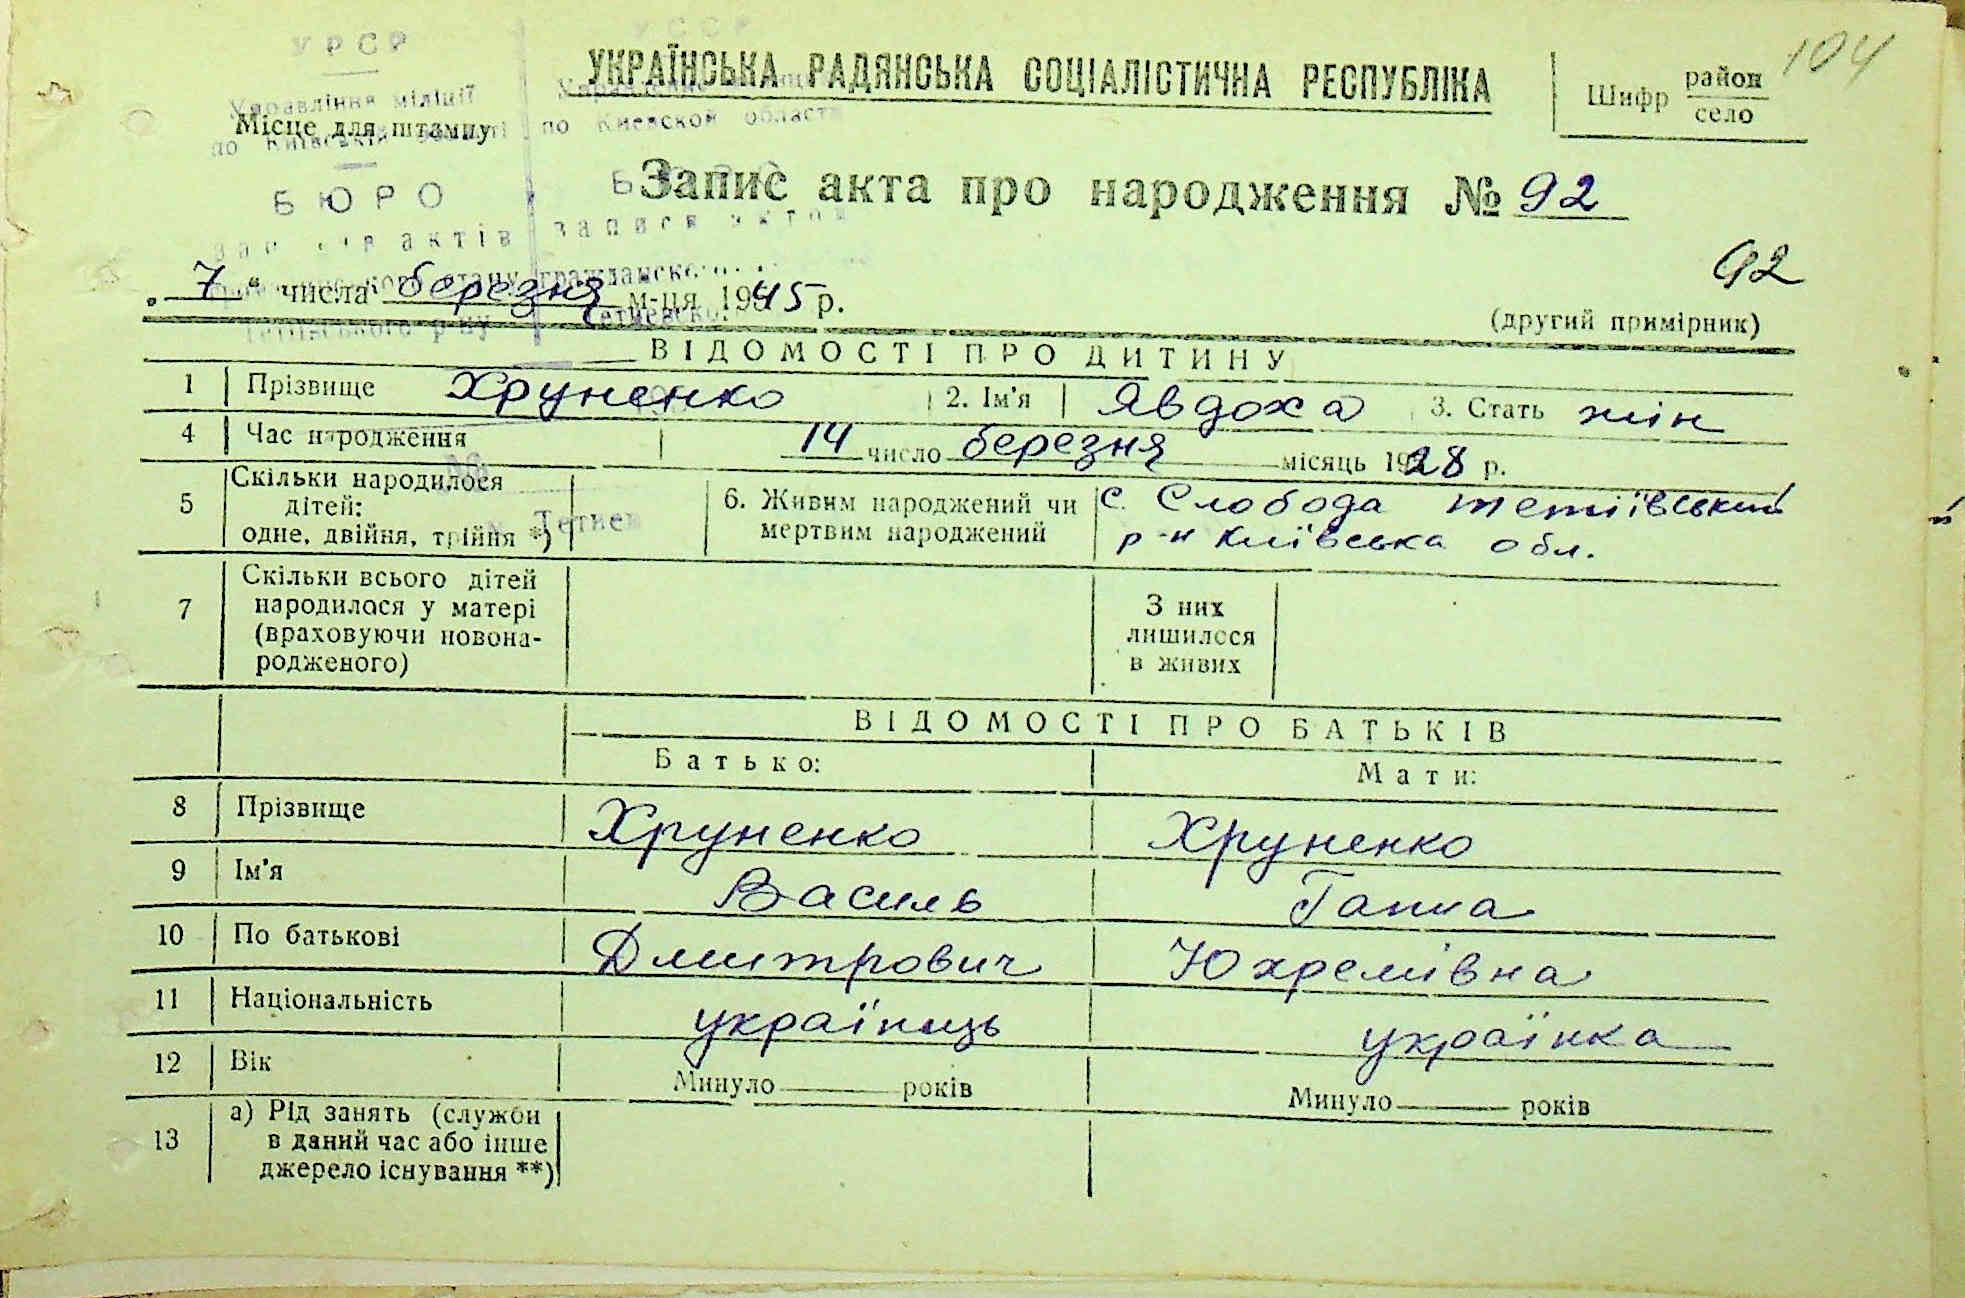 104
УРСР
УССР
УКРАЇНСЬКА РАДЯНСЬКА СОЦІАЛІСТИЧНА РЕСПУБЛІКА
Шифр район
село
Управління міліції
Місце для штампу
по Київській області по Киевской области
БЮРО
Запис акта про народження № 92
актів записи актов
92
„7“ числа березня м-ця 1945 р.
(другий примірник)
ВІДОМОСТІ ПРО ДИТИНУ
1 Прізвище Хруненко 2. Ім'я Явдоха 3. Стать жін
4 Час народження 14 число березня місяць 1928 р.
5 Скільки народилося дітей: одне, двійня, трійня *)
Тетиев
6. Живим народжений чи мертвим народжений
с. Слобода тетіївський
р-н Київська обл.
7 Скільки всього дітей народилося у матері (враховуючи новонародженого)
З них лишилося в живих
ВІДОМОСТІ ПРО БАТЬКІВ
Батько: Мати:
8 Прізвище Хруненко Хруненко
9 Ім'я Василь Ганна
10 По батькові Дмитрович Юхремівна
11 Національність українець українка
12 Вік Минуло років Минуло років
13 а) Рід занять (служби
в даний час або інше
джерело існування **)